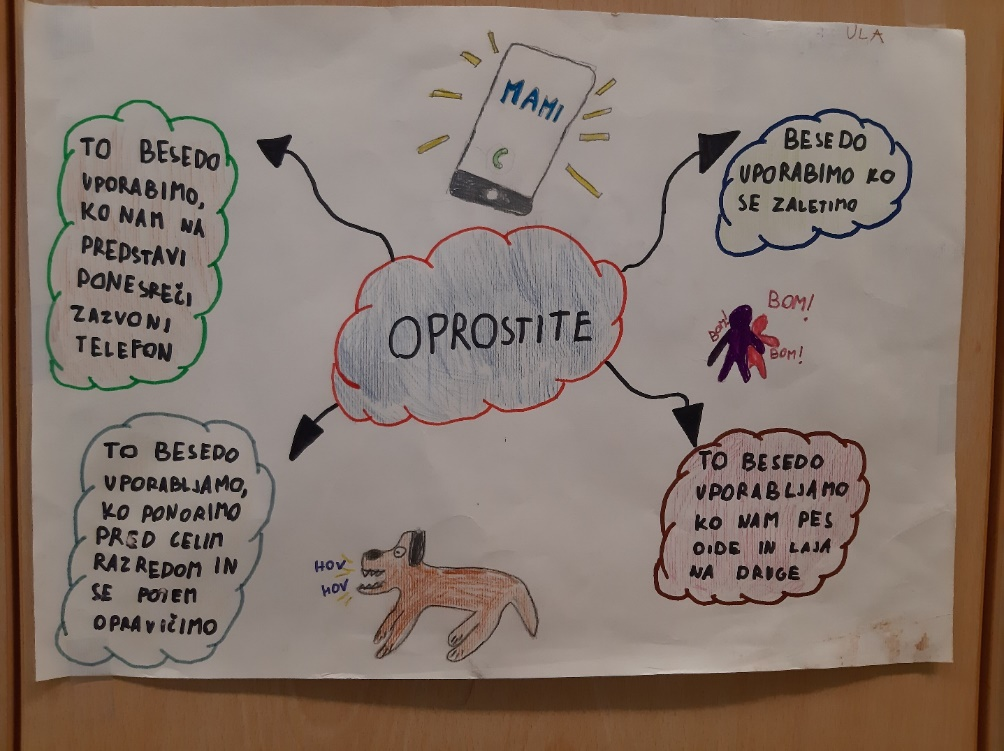 ULA
MAMI
TO BESEDO
UPORABIMO,
KO NAM NA
PREDSTAVI
PONESREČI
ZAZVONI
TELEFON
BESEDO
UPORABIMO KO
SE ZALETIMO
OPROSTITE
BOM!
BOM!
BOM!
TO BESEDO
UPORABLJAMO,
KO PONORIMO
PRED CELIM
RAZREDOM IN
SE POTEM
OPRAVIČIMO
HOV
HOV
TO BESEDO
UPORABLJAMO
KO NAM PES
OIDE IN LAJA
NA DRUGE